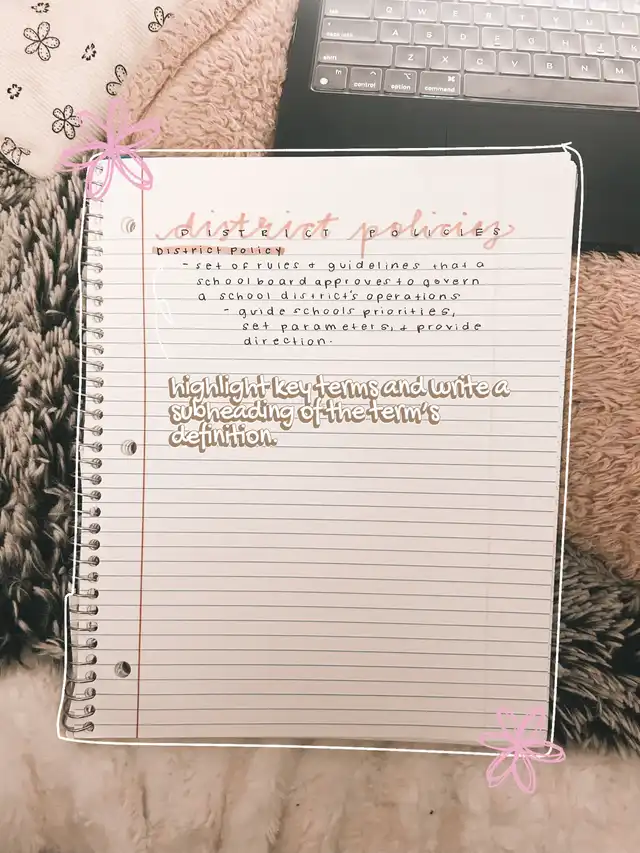 Q W E R T Y U I
caps lock A S D F G H J K
shift Z X C V B N M
fn control option command
district policies
DISTRICT POLICIES
District Policy
- set of rules + guidelines that a
school board approves to govern
a school district's operations
- guide schools priorities,
set parameters, + provide
direction.
highlight key terms and write a
subheading of the term's
definition.